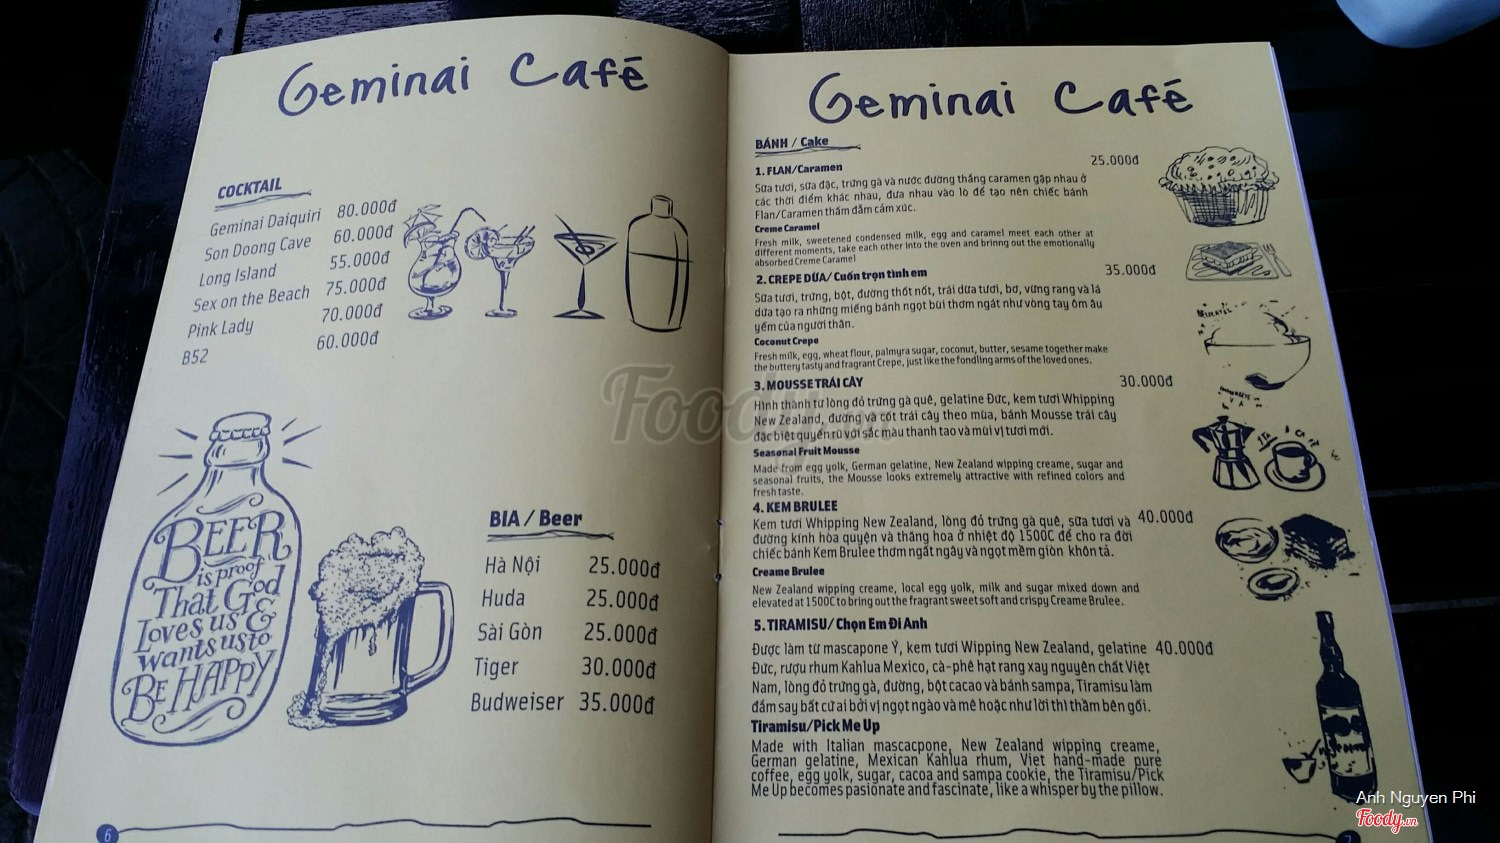 Geminai Café
COCKTAIL
Geminai Daiquiri 80.000đ
Son Doong Cave 60.000đ
Long Island 55.000đ
Sex on the Beach 75.000đ
Pink Lady 70.000đ
B52 60.000đ
BEER
is proof
That God
Loves us &
wants us to
BE HAPPY
BIA / Beer
Hà Nội 25.000đ
Huda 25.000đ
Sài Gòn 25.000đ
Tiger 30.000đ
Budweiser 35.000đ
6
Geminai Café
BÁNH / Cake
1. FLAN/Caramen 25.000đ
Sữa tươi, sữa đặc, trứng gà và nước đường thắng caramen gặp nhau ở
các thời điểm khác nhau, đưa nhau vào lò để tạo nên chiếc bánh
Flan/Caramen thấm đẫm cảm xúc.
Creme Caramel
Fresh milk, sweetened condensed milk, egg and caramel meet each other at
different moments, take each other into the oven and brinng out the emotionally
absorbed Creme Caramel
2. CREPE DỪA/ Cuốn trọn tình em 35.000đ
Sữa tươi, trứng, bột, đường thốt nốt, trái dừa tươi, bơ, vừng rang và lá
dứa tạo ra những miếng bánh ngọt bùi thơm ngát như vòng tay ôm âu
yếm của người thân.
Coconut Crepe
Fresh milk, egg, wheat flour, palmyra sugar, coconut, butter, sesame together make
the buttery tasty and fragrant Crepe, just like the fondling arms of the loved ones.
3. MOUSSE TRÁI CÂY 30.000đ
Hình thành từ lòng đỏ trứng gà quê, gelatine Đức, kem tươi Whipping
New Zealand, đường và cốt trái cây theo mùa, bánh Mousse trái cây
đặc biệt quyến rũ với sắc màu thanh tao và mùi vị tươi mới.
Seasonal Fruit Mousse
Made from egg yolk, German gelatine, New Zealand wipping creame, sugar and
seasonal fruits, the Mousse looks extremely attractive with refined colors and
fresh taste.
4. KEM BRULEE
Kem tươi Whipping New Zealand, lòng đỏ trứng gà quê, sữa tươi và 40.000đ
đường kính hòa quyện và thăng hoa ở nhiệt độ 1500C để cho ra đời
chiếc bánh Kem Brulee thơm ngất ngây và ngọt mềm giòn khôn tả.
Creame Brulee
New Zealand wipping creame, local egg yolk, milk and sugar mixed down and
elevated at 1500C to bring out the fragrant sweet soft and crispy Creame Brulee.
5. TIRAMISU/ Chọn Em Đi Anh
Được làm từ mascapone Ý, kem tươi Wipping New Zealand, gelatine 40.000đ
Đức, rượu rhum Kahlua Mexico, cà-phê hạt rang xay nguyên chất Việt
Nam, lòng đỏ trứng gà, đường, bột cacao và bánh sampa, Tiramisu làm
đắm say bất cứ ai bởi vị ngọt ngào và mê hoặc như lời thì thầm bên gối.
Tiramisu/Pick Me Up
Made with Italian mascacpone, New Zealand wipping creame,
German gelatine, Mexican Kahlua rhum, Viet hand-made pure
coffee, egg yolk, sugar, cacoa and sampa cookie, the Tiramisu/Pick
Me Up becomes pasionate and fascinate, like a whisper by the pillow.
7
Foody.vn
Anh Nguyen Phi
Foody.vn